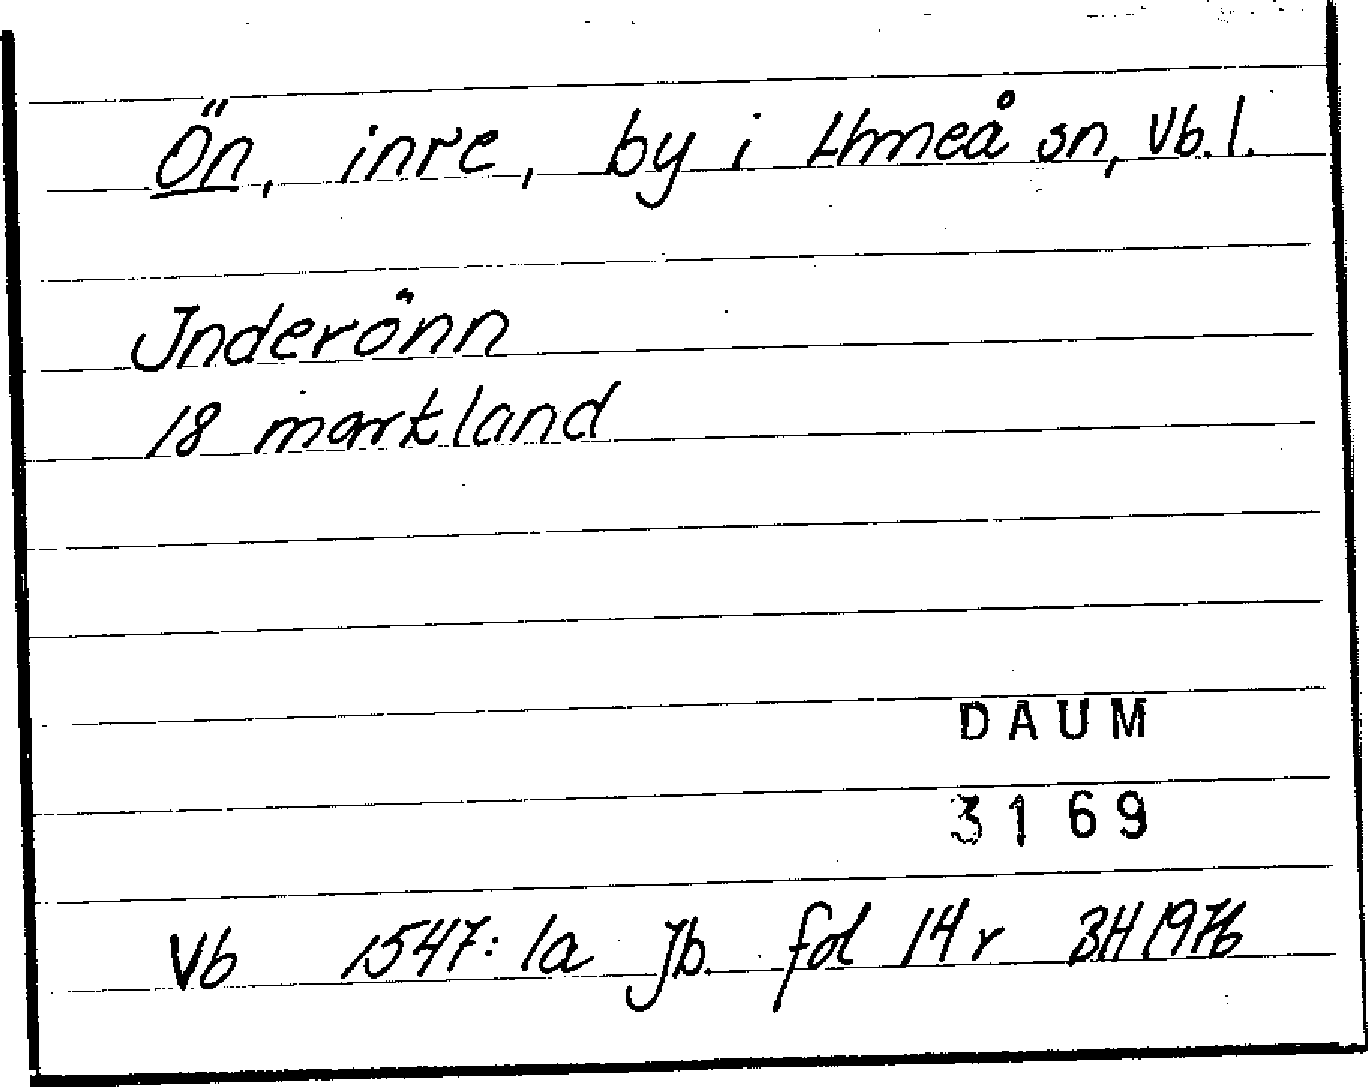 Ön, inre, by i Umeå sn, Vb. l.
Jnderönn
18 markland
DAUM
3169
Vb 1547: 1a Jb. fol 14 r BH 1976